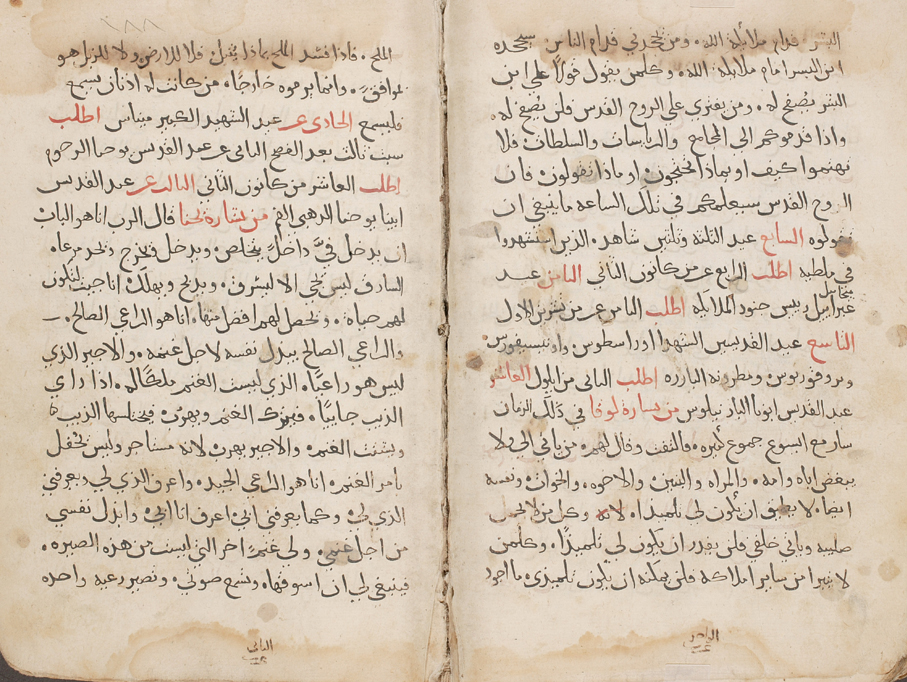 البشر قدام ملايكة الله. ومن يجحدني قدام الناس سيجحده
ابن البشر امام ملايكة الله. وكلمن يقول قولًا على ابن
البشر يُصفح له. ومن يفتري على الروح القدس فلن يُصفح له.
واذا قدموكم الى المجامع والرياسات والسلطات فلا
تهتموا كيف او بماذا تحتجون او ماذا تقولون فان
الروح القدس سيعلمكم في تلك الساعه ما ينبغي ان
تقولوه السابع عيد الثلثة وثلثين شاهد. الذين استشهدوا
في ملطيه اطلب الرابع عشر من كانون الثاني الثامن عيد
ميخاييل
غبراييل رييس جنود الملايكه اطلب الثامن عشر من تشرين الاول
التاسع عيد القديسين الشهدا اوراسطوس واونيسيفورس
وبروفوريوس ومطرونه الباره اطلب الثاني من ايلول العاشر
عيد القديس ابونا البار نيلوس من بشارة لوقا في ذلك الزمان
سار مع ايسوع جموع كثيره. فالتفت وقال لهم. من ياتي الي ولا
يبغض اباه وامه. والمراه والبنين والاخوه. والخوات ونفسه
ايضا. لا يطيق ان يكون لي تلميذا. لانه وكل من لا يحمل
صليبه وياتي خلفي فلن يقدر ان يكون لي تلميذًا. وكلمن
لا يتبرا من ساير املاكه فلن يمكنه ان يكون تلميذي ما اجود
الملح. فاذا فسد الملح بماذا يملح فلا للارض ولا للمزبل هو
موافق. وانما يرموه خارجًا. من كانت له اذنان يسمع
فليسمع الحادي عشر عيد الشهيد الكبير ميناس اطلب
سبت ثالث بعد الفصح الثاني عشر عيد القديس يوحنا الرحوم
اطلب العاشر من كانون الثاني الثالث عشر عيد القديس
ابينا يوحنا الذهبي الفم من بشارة يحنا قال الرب انا هو الباب
ان يدخل فيَّ داخل يتخلص. ويدخل ويخرج ويجد مرعا.
السارق ليس يجي الا ليسرق. ويذبح ويهلك انا جيت لتكون
لهم حياة. ويحصل لهم افضل منها. انا هو الراعي الصالح.
والراعي الصالح يبذل نفسه لاجل غنمه. والاجير الذي
ليس هو راعيًا. الذي ليست الغنم ملكًا له. اذا راي
الذيب جاييًا. فيترك الغنم ويهرب. فيختلسها الذيب
ويشتت الغنم. والاجير يهرب لانه مستاجر وليس يحفل
بامر الغنم. انا هو الراعي الجيد. واعرف الذي لي ويعرفني
الذي لي. وكما يعرفني ابي اعرف انا ابي. وابذل نفسي
من اجل غنمي. ولي غنمًا اخر التي ليست من هذه الصيره.
فينبغي لي ان اسوقها. وتسمع صوتي. وتصير رعيه واحده